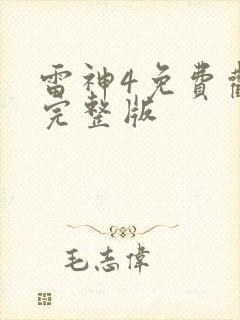 雷神4免費
完整版
毛志偉